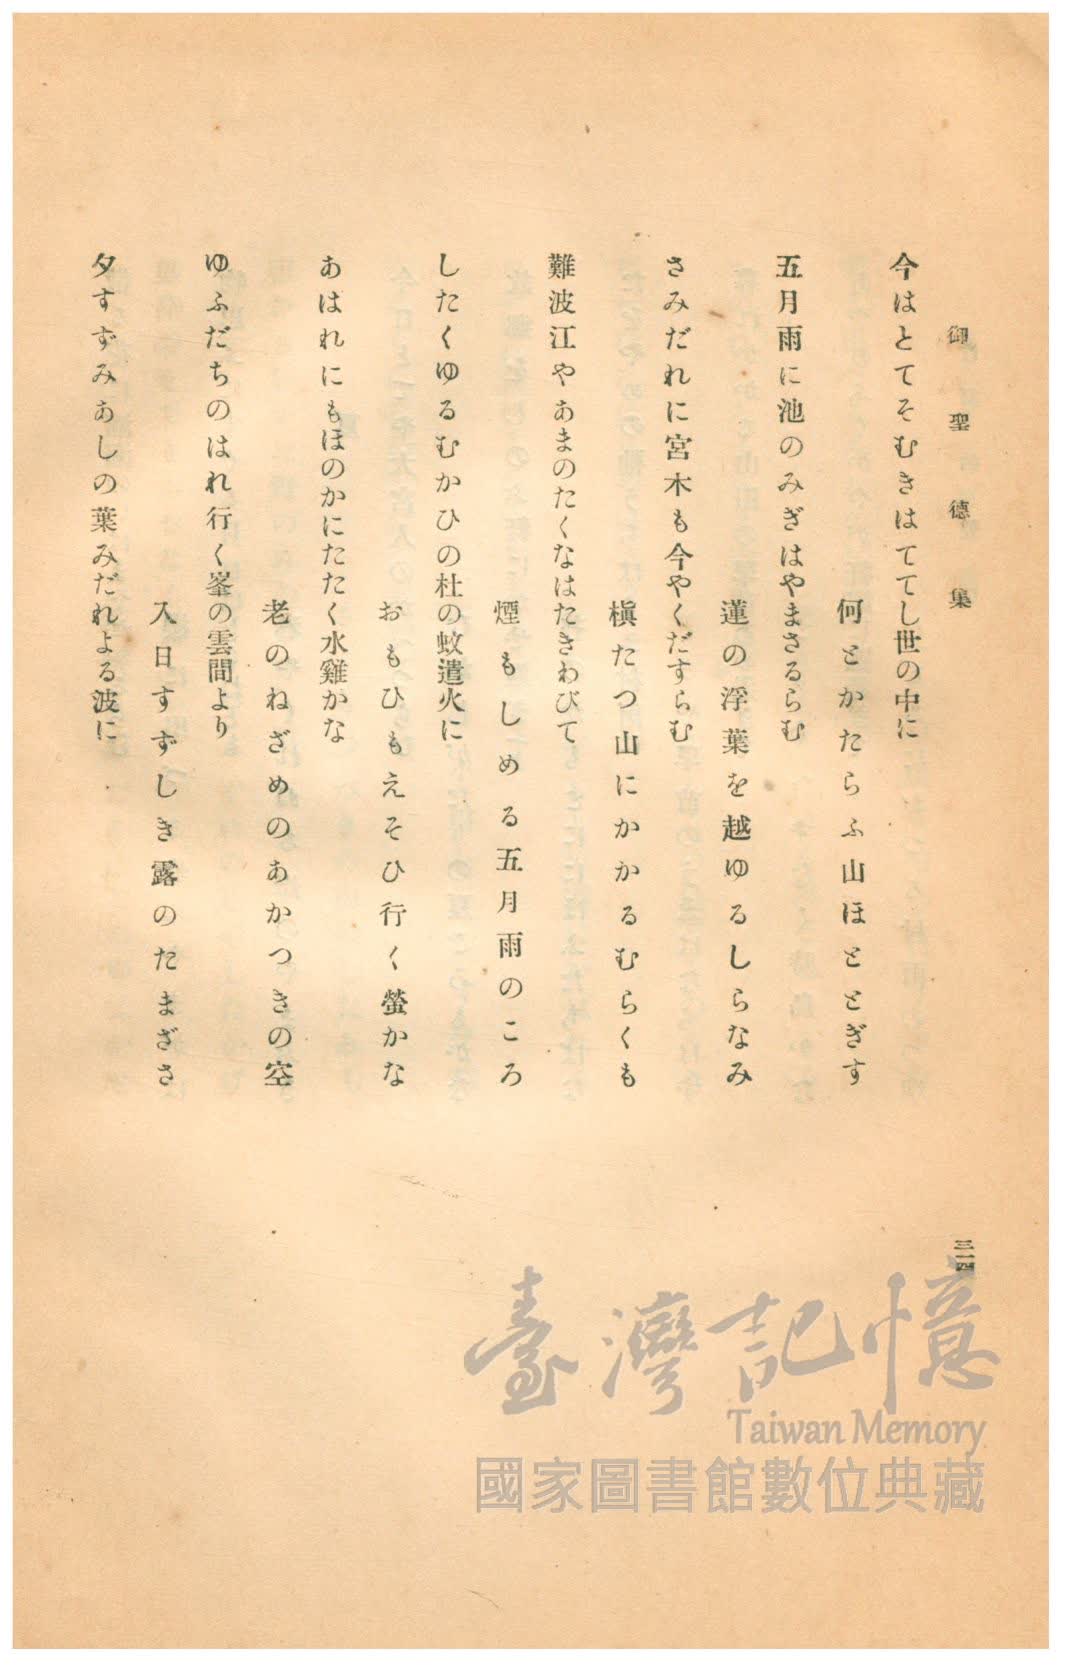 御聖德集
三一四
今はとてそむきはててし世の中に
何とかたらふ山ほととぎす
五月雨に池のみぎはやまさるらむ
蓮の浮葉を越ゆるしらなみ
さみだれに宮木も今やくだすらむ
槇たつ山にかかるむらくも
難波江やあまのたくなはたきわびて
煙もしめる五月雨のころ
したくゆるむかひの杜の蚊遣火に
おもひもえそひ行く螢かな
あはれにもほのかにたたく水雞かな
老のねざめのあかつきの空
ゆふだちのはれ行く峯の雲間より
入日すずしき露のたまざさ
夕すずみあしの葉みだれよる波に
臺灣記憶
Taiwan Memory
國家圖書館數位典藏